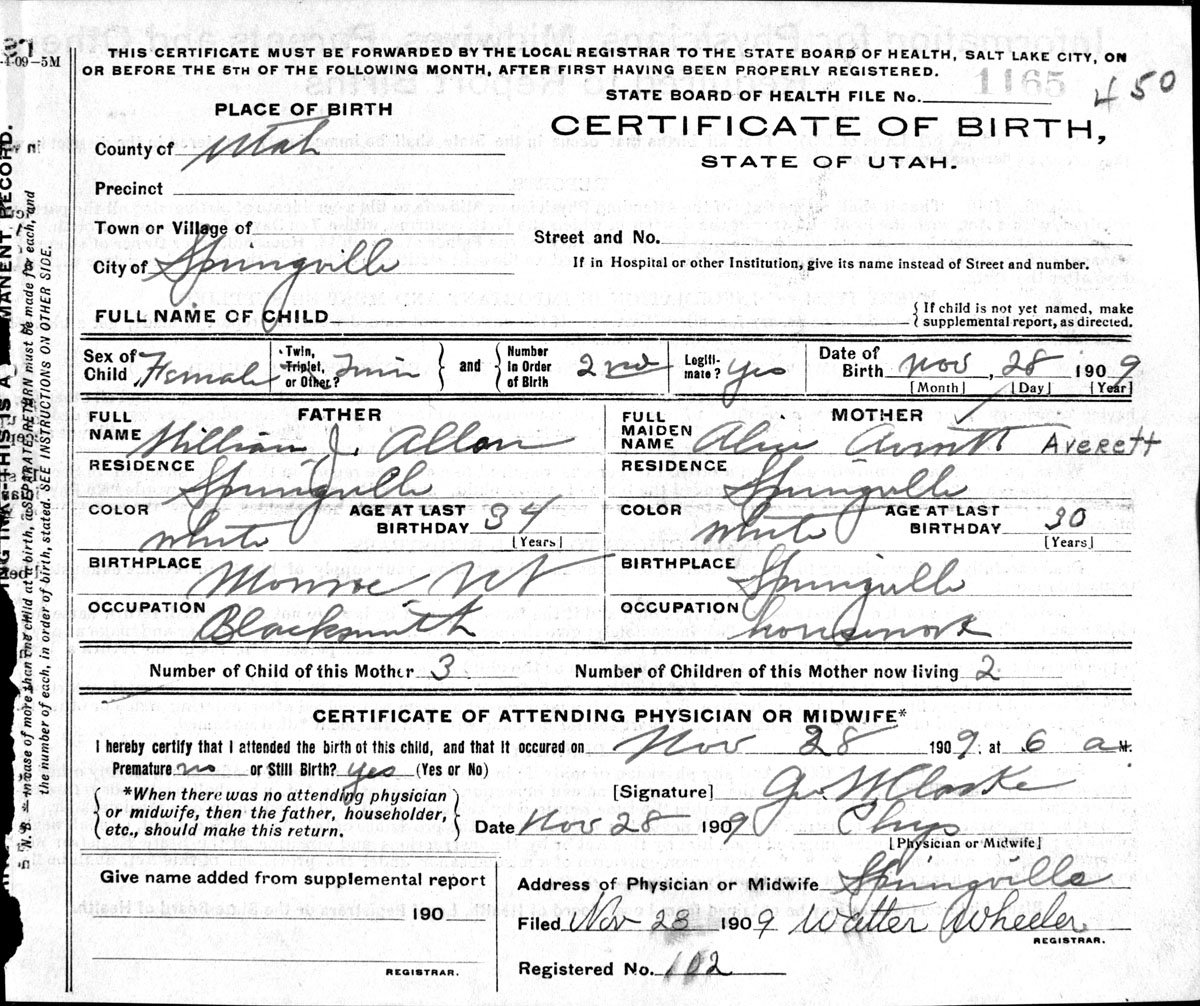 -I-09-5M
THIS CERTIFICATE MUST BE FORWARDED BY THE LOCAL REGISTRAR TO THE STATE BOARD OF HEALTH, SALT LAKE CITY, ON
OR BEFORE THE 5TH OF THE FOLLOWING MONTH, AFTER FIRST HAVING BEEN PROPERLY REGISTERED.
1165
450
STATE BOARD OF HEALTH FILE No.
PLACE OF BIRTH
CERTIFICATE OF BIRTH,
STATE OF UTAH.
County of Utah
Precinct
Town or Village of
Street and No.
City of Springville
If in Hospital or other Institution, give its name instead of Street and number.
FULL NAME OF CHILD
{If child is not yet named, make
supplemental report, as directed.
Sex of Child Female
Twin, Triplet, or Other? Twin
and
Number In Order of Birth 2nd
Legiti-mate? Yes
Date of Birth Nov, 28 1909
[Month] [Day] [Year]
FATHER
FULL NAME William J. Allan
RESIDENCE Springville
COLOR White
AGE AT LAST BIRTHDAY 34
[Years]
BIRTHPLACE Monroe
OCCUPATION Blacksmith
MOTHER
FULL MAIDEN NAME Alice Averett Averett
RESIDENCE Springville
COLOR White
AGE AT LAST BIRTHDAY 30
[Years]
BIRTHPLACE Springville
OCCUPATION housework
Number of Child of this Mother 3
Number of Children of this Mother now living 2
CERTIFICATE OF ATTENDING PHYSICIAN OR MIDWIFE*
I hereby certify that I attended the birth of this child, and that it occured on Nov 28 1909, at 6 a M.
Premature no or Still Birth? yes (Yes or No)
{*When there was no attending physician
or midwife, then the father, householder,
etc., should make this return.}
[Signature]
Date Nov 28 1909
Phys
[Physician or Midwife]
Give name added from supplemental report
190
REGISTRAR.
Address of Physician or Midwife Springville
Filed Nov 28 1909 Walter Wheeler
REGISTRAR.
Registered No. 102
THIS IS A MANENT RECORD.
N. B.—In case of more than one child at birth, a SEPARATE RETURN must be made for each, and
the number of each, in order of birth, stated. SEE INSTRUCTIONS ON OTHER SIDE.